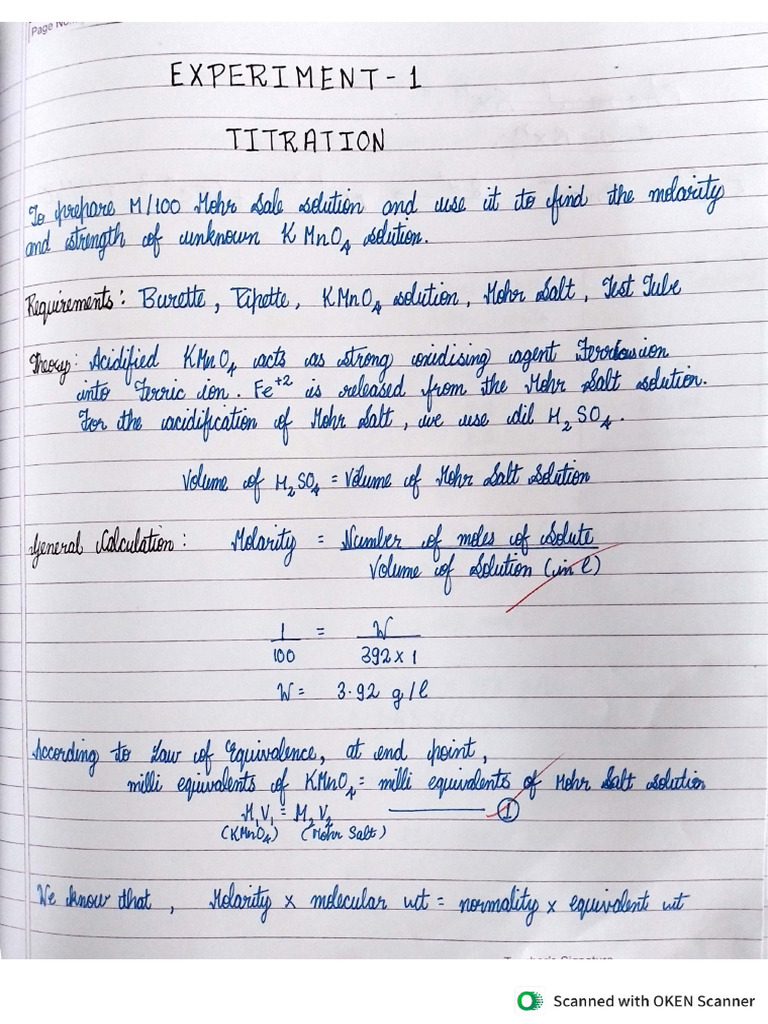 Page No.
EXPERIMENT-1
TITRATION
To prepare M/100 Mohr Sale solution and use it to find the molarity
and strength of unknown KMnO4 solution.
Requirements: Burette, Pipette, KMnO4 solution, Mohr Salt, Test Tube
Theory: Acidified KMnO4 acts as strong oxidising agent Ferrous ion
into Ferric ion. Fe+2 is released from the Mohr Salt solution.
For the acidification of Mohr Salt, we use dil H2SO4.
Volume of H2SO4 = Volume of Mohr Salt Solution
General Calculation: Molarity = Number of moles of Solute
Volume of Solution (in l)
1 = W
100 392 x 1
W = 3.92 g/l
According to Law of Equivalence, at end point,
milli equivalents of KMnO4 = milli equivalents of Mohr Salt solution
M1V1 = M2V2 ——— 1
(KMnO4) (Mohr Salt)
We know that, Molarity x molecular wt = normality x equivalent wt
Scanned with OKEN Scanner